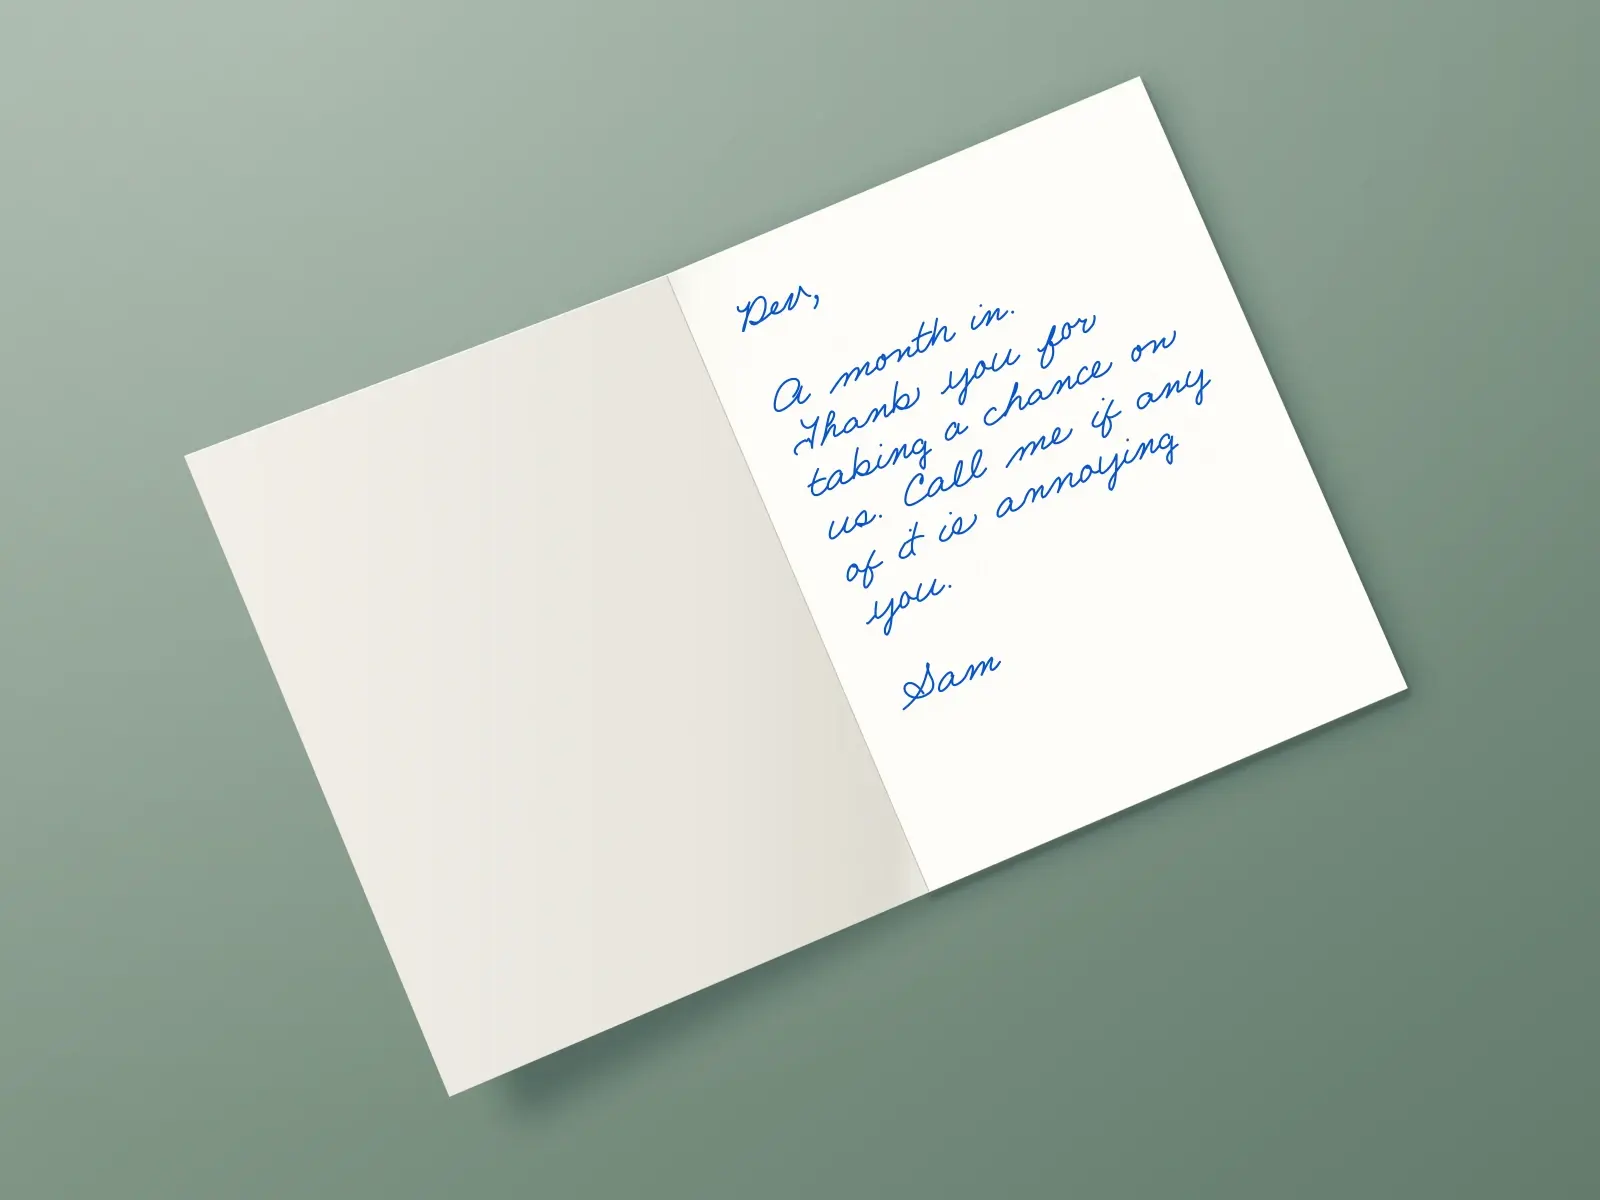 Dev,
A month in.
Thank you for
taking a chance on
us. Call me if any
of it is annoying
you.
Sam